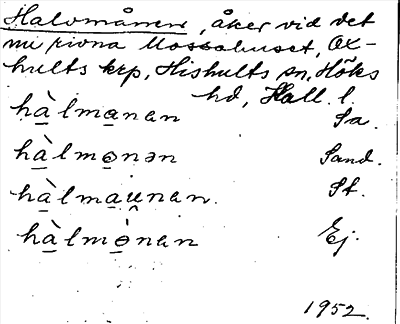 Halvmånen, åker vid det
nu rivna Mossahuset, Ox-
hults krp, Hishults sn, Höks
hd, Hall. l.
hà̲lma̲nan Sa.
hà̲lmo̲nən Sand.
hà̲lma̲u̯nan. St.
hà̲lmò̲nan Ej.
1952.